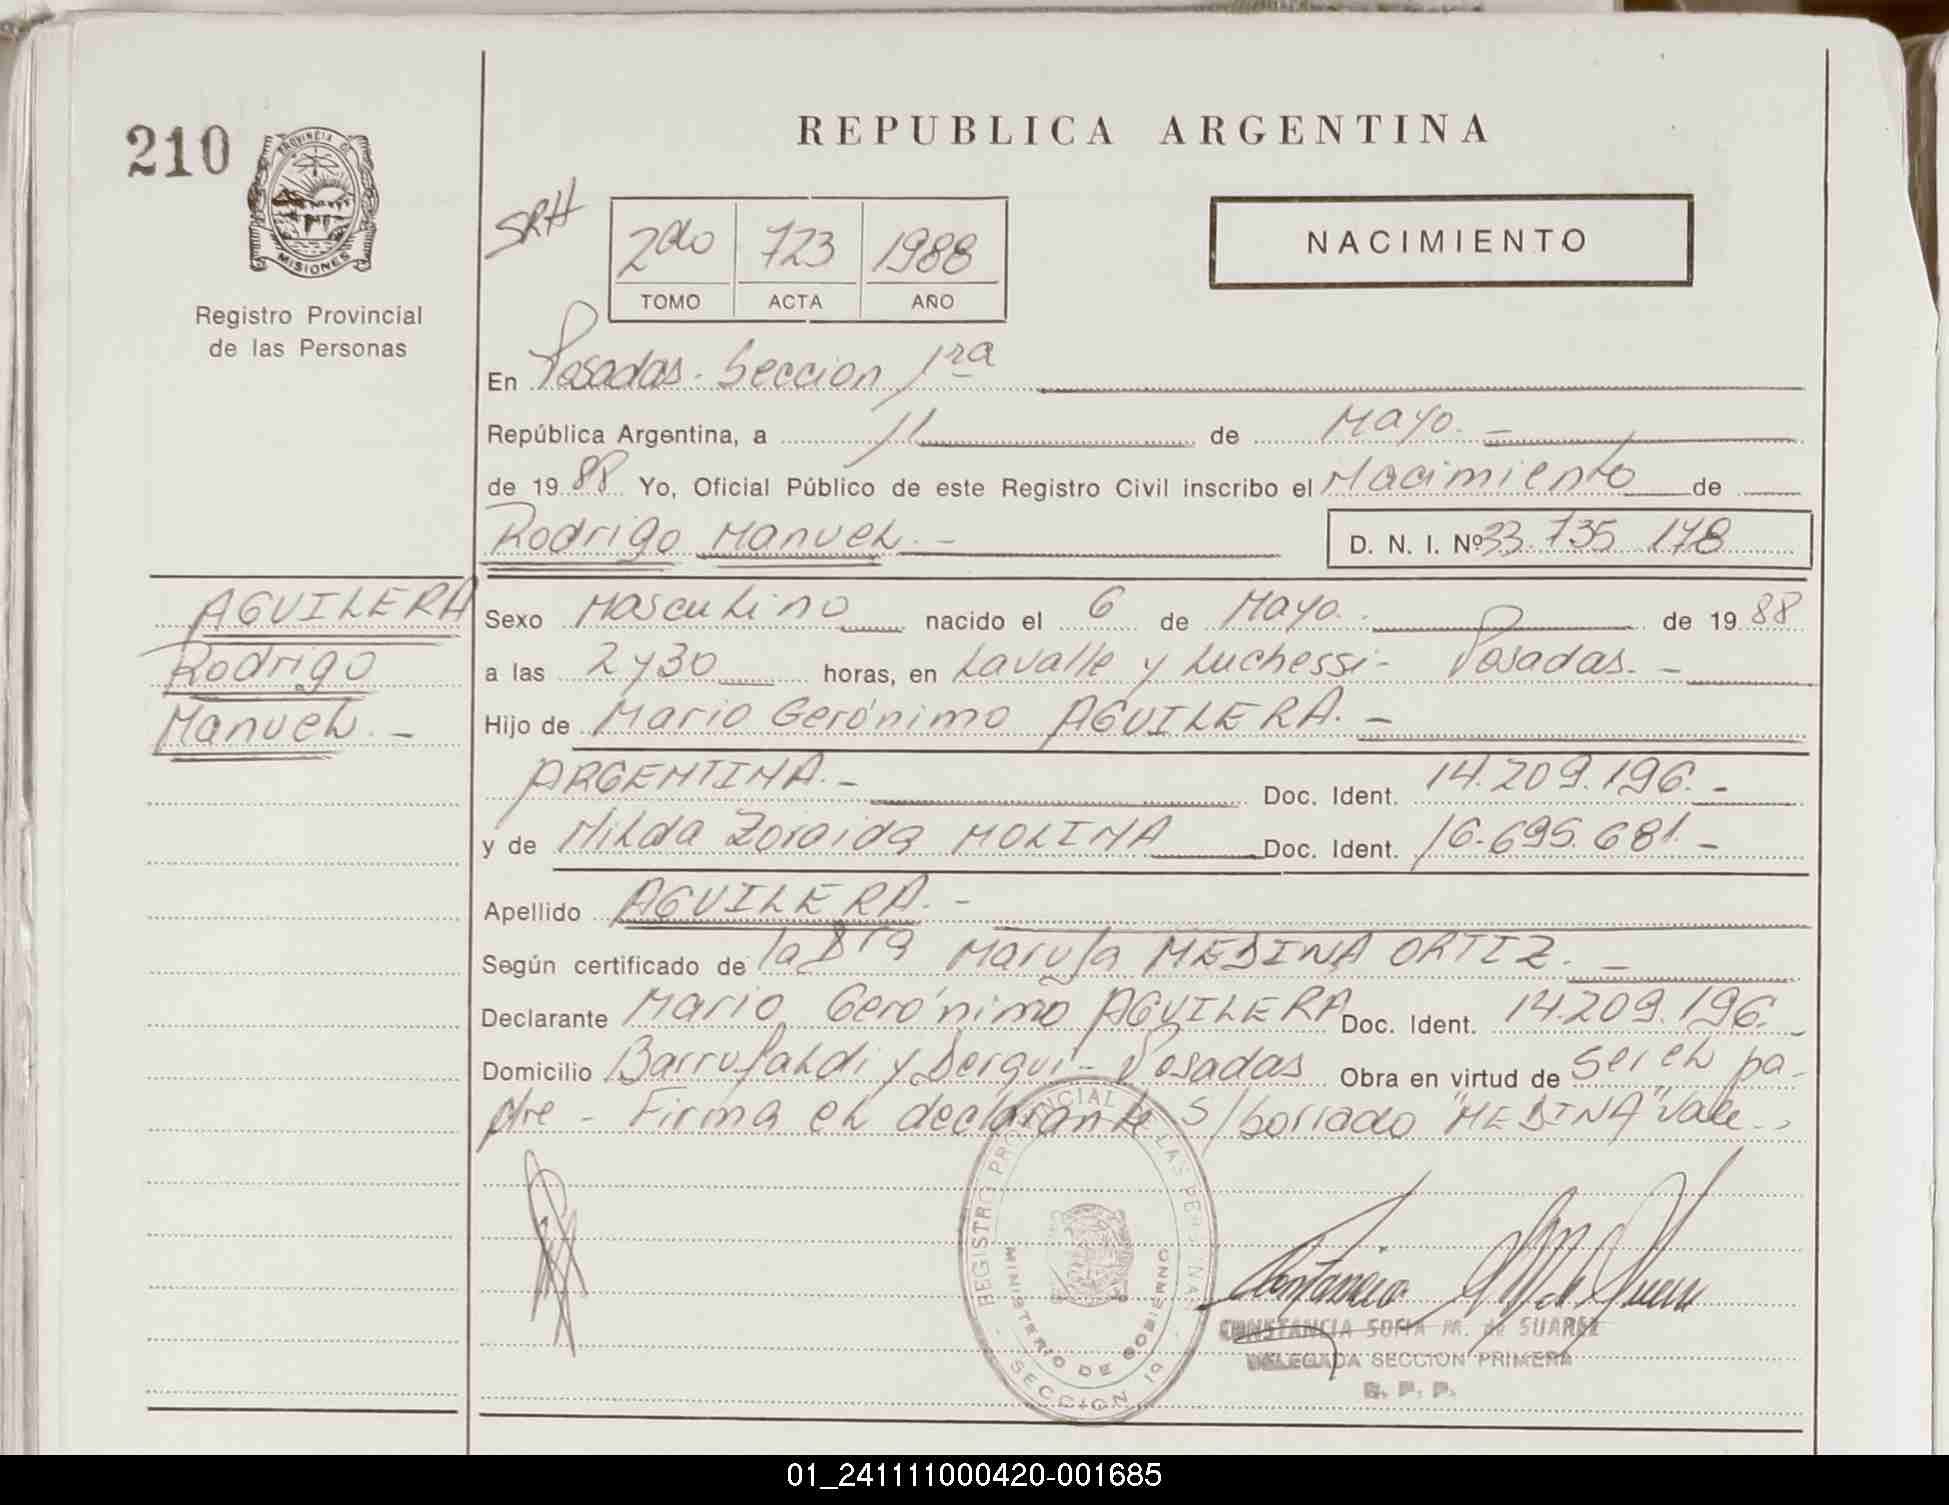 210
PROVINCIA DE
MISIONES
Registro Provincial
de las Personas
REPUBLICA ARGENTINA
SRH
2do 723 1988
TOMO ACTA AÑO
NACIMIENTO
En Posadas - Seccion 1ra
República Argentina, a 11 de Mayo. -
de 19 88 Yo, Oficial Público de este Registro Civil inscribo el Nacimiento de
Rodrigo Manuel. -
D. N. I. Nº 33.735.178
AGUILERA
Rodrigo
Manuel. -
Sexo Masculino nacido el 6 de Mayo. de 19 88
a las 2 y 30 horas, en Lavalle y Luchessi - Posadas. -
Hijo de Mario Gerónimo AGUILERA. -
ARGENTINA. - Doc. Ident. 14.209.196. -
y de Nilda Zoraida MOLINA Doc. Ident. 16.695.681. -
Apellido AGUILERA. -
Según certificado de la Dra MEDINA ORTIZ. -
Declarante Mario Gerónimo AGUILERA Doc. Ident. 14.209.196. -
Domicilio Barrufaldi y Derqui - Posadas Obra en virtud de ser el pa-
dre - Firma el declarante s/borrado "MEDINA" Vale. -
REGISTRO PROVINCIAL DE LAS PERSONAS
MINISTERIO DE GOBIERNO
SECCION 1ª
CONSTANCIA SOFIA M. de SUAREZ
DELEGADA SECCION PRIMERA
R. P. P.
01_241111000420-001685